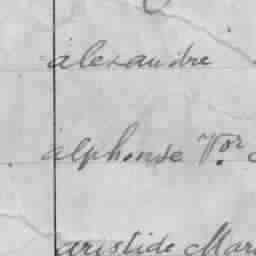 alexandre
alphonse Vor
aristide Mar